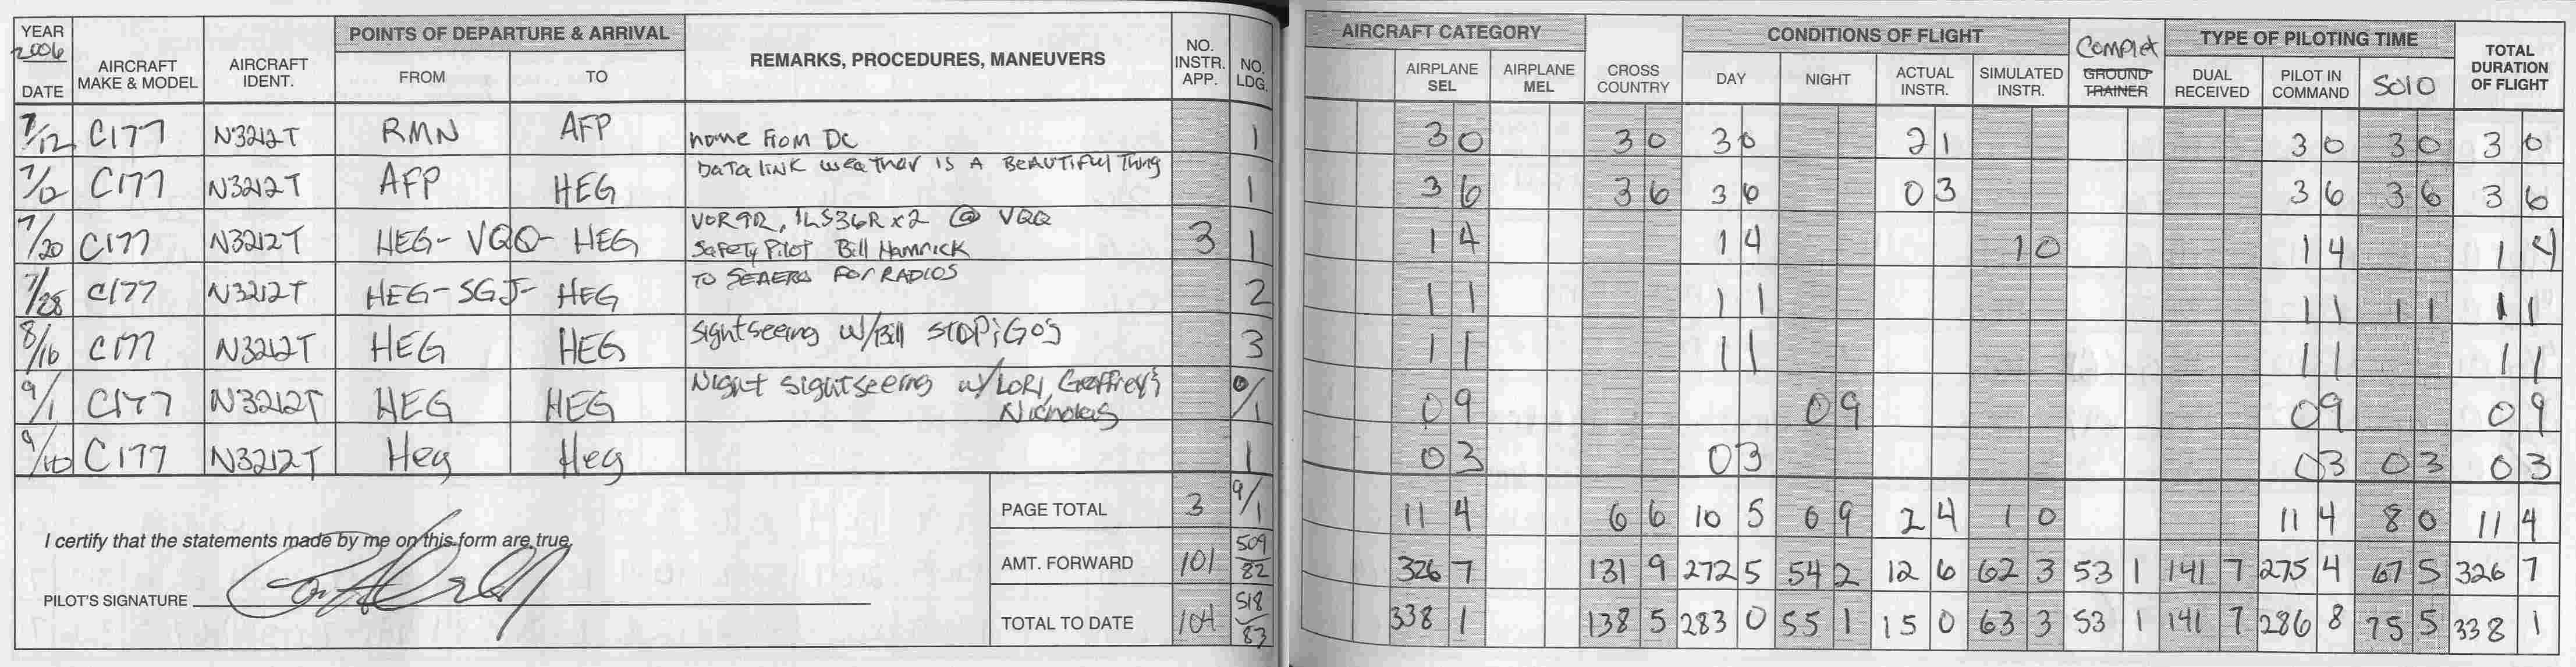 YEAR 2006 DATE AIRCRAFT MAKE & MODEL AIRCRAFT IDENT. POINTS OF DEPARTURE & ARRIVAL FROM TO REMARKS, PROCEDURES, MANEUVERS NO. INSTR. APP. NO. LDG. AIRCRAFT CATEGORY AIRPLANE SEL AIRPLANE MEL CROSS COUNTRY CONDITIONS OF FLIGHT DAY NIGHT ACTUAL INSTR. SIMULATED INSTR. Complex GROUND TRAINER TYPE OF PILOTING TIME DUAL RECEIVED PILOT IN COMMAND Solo TOTAL DURATION OF FLIGHT
7/12 C177 N3212T RMN AFP home From DC 1 3 0 3 0 3 0 2 1 3 0 3 0 3 0
7/12 C177 N3212T AFP HEG DATA LINK weather IS A BEAUTIFul Thing 1 3 6 3 6 3 6 0 3 3 6 3 6 3 6
7/20 C177 N3212T HEG- VQQ- HEG VOR9R, ILS36R x2 @ VQQ Safety Pilot Bill Hamrick 3 1 1 4 1 4 1 0 1 4 1 4
7/28 C177 N3212T HEG-SGJ- HEG TO SEAERO For RADIOS 2 1 1 1 1 1 1 1 1 1 1
8/16 C177 N3212T HEG HEG Sightseeing w/Bill STOP & Go's 3 1 1 1 1 1 1 1 1
9/1 C177 N3212T HEG HEG Night Sightseeing w/ LORI, Geoffrey & Nicholas 0/1 0 9 0 9 0 9 0 9
9/10 C177 N3212T Heg Heg 1 0 3 0 3 0 3 0 3 0 3
PAGE TOTAL 3 9/1 11 4 6 6 10 5 0 9 2 4 1 0 11 4 8 0 11 4
I certify that the statements made by me on this form are true.
AMT. FORWARD 101 509/82 326 7 131 9 272 5 54 2 12 6 62 3 53 1 141 7 275 4 67 5 326 7
PILOT'S SIGNATURE
TOTAL TO DATE 104 518/83 338 1 138 5 283 0 55 1 15 0 63 3 53 1 141 7 286 8 75 5 338 1